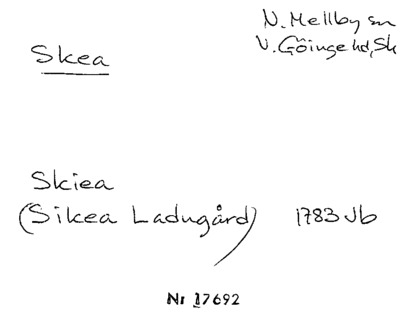 Skea
N. Mellby sn
V. Göinge hd, Sk
Skiea
(Sikea Ladugård) 1783 Jb
Nr 17692